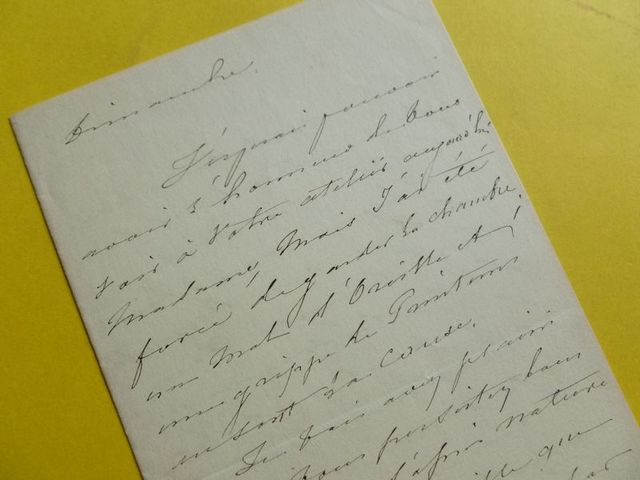 Dimanche.
J'espérais pouvoir
avoir l'honneur de vous
voir à votre atelier aujourd'hui
Madame, Mais J'ai été
forcé de garder la chambre,
un Mal d'Oreille et
une grippe de Printemps
en sont la cause.
Je vois avec plaisir
vous
d'après nature
que